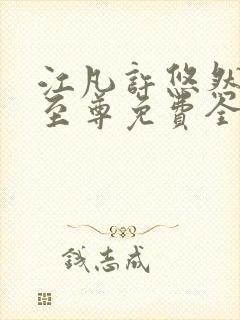 江凡許悠然
至尊免費全
钱志成